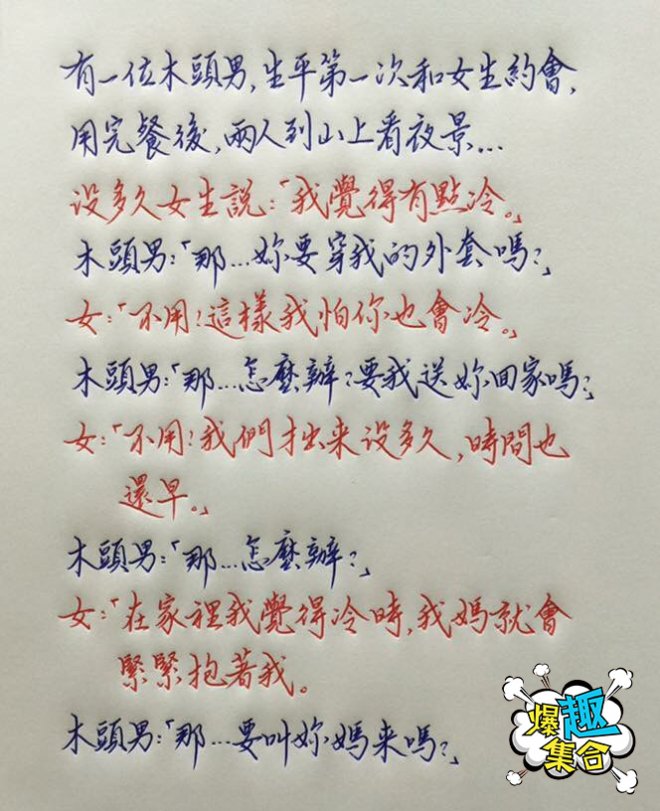 有一位木頭男,生平第一次和女生約會,
用完餐後,兩人到山上看夜景...
沒多久女生說:「我覺得有點冷。」
木頭男:「那...妳要穿我的外套嗎?」
女:「不用!這樣我怕你也會冷。」
木頭男:「那...怎麼辦?要我送妳回家嗎?」
女:「不用!我們才出来沒多久,時間也
還早。」
木頭男:「那...怎麼辦?」
女:「在家裡我覺得冷時,我媽就會
緊緊抱著我。
木頭男:「那...要叫妳媽来嗎?」
爆趣
集合